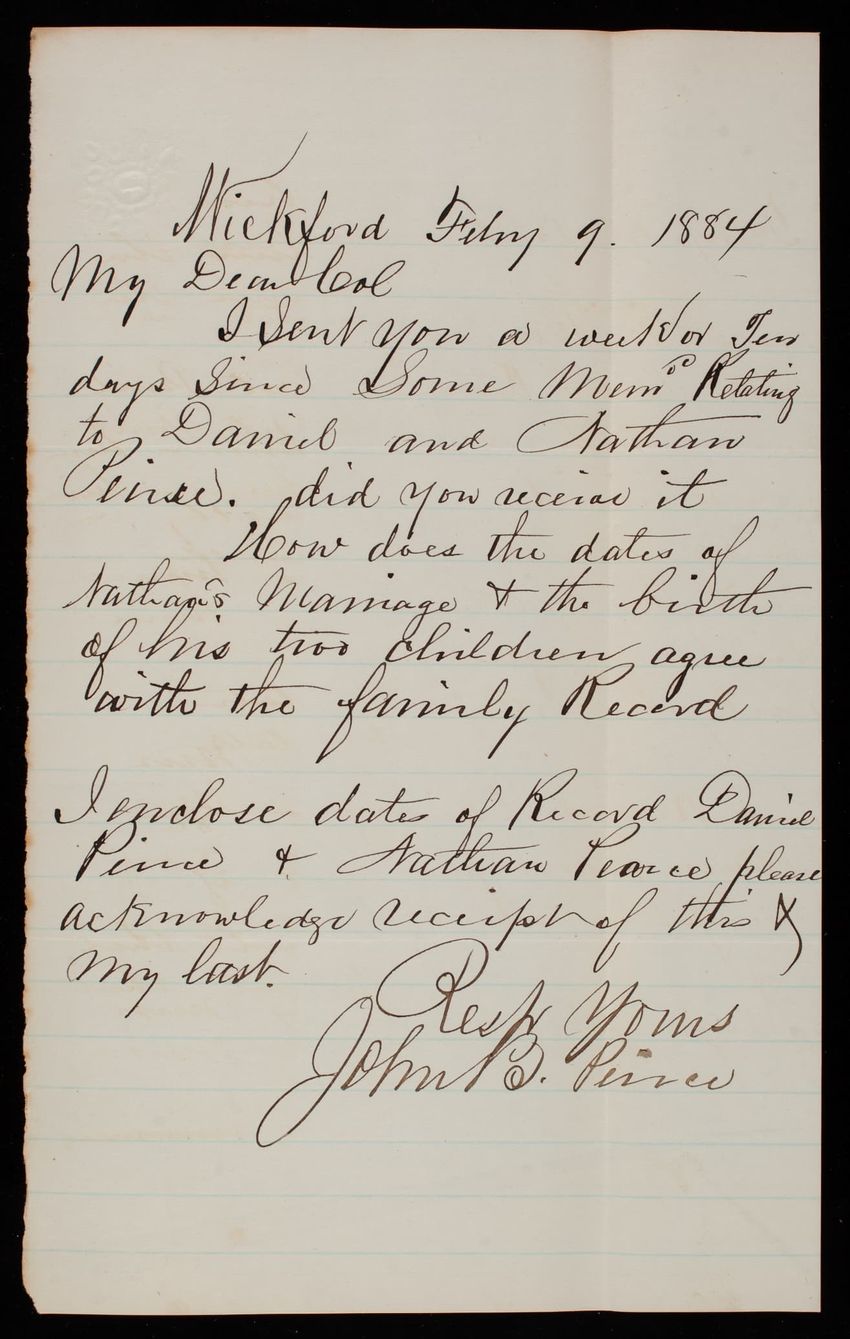 Wickford Feby 9. 1884
My Dear Col
I Sent you a week or Ten
days Since Some Memo Relating
to Daniel and Nathan
Peirce. did you receive it
How does the dates of
Nathan's Marriage & the birth
of his two children agree
with the family Record
I enclose dates of Record Daniel
Peirce & Nathan Pearce please
acknowledge receipt of this &
My last.
Resp Yours
John B. Peirce